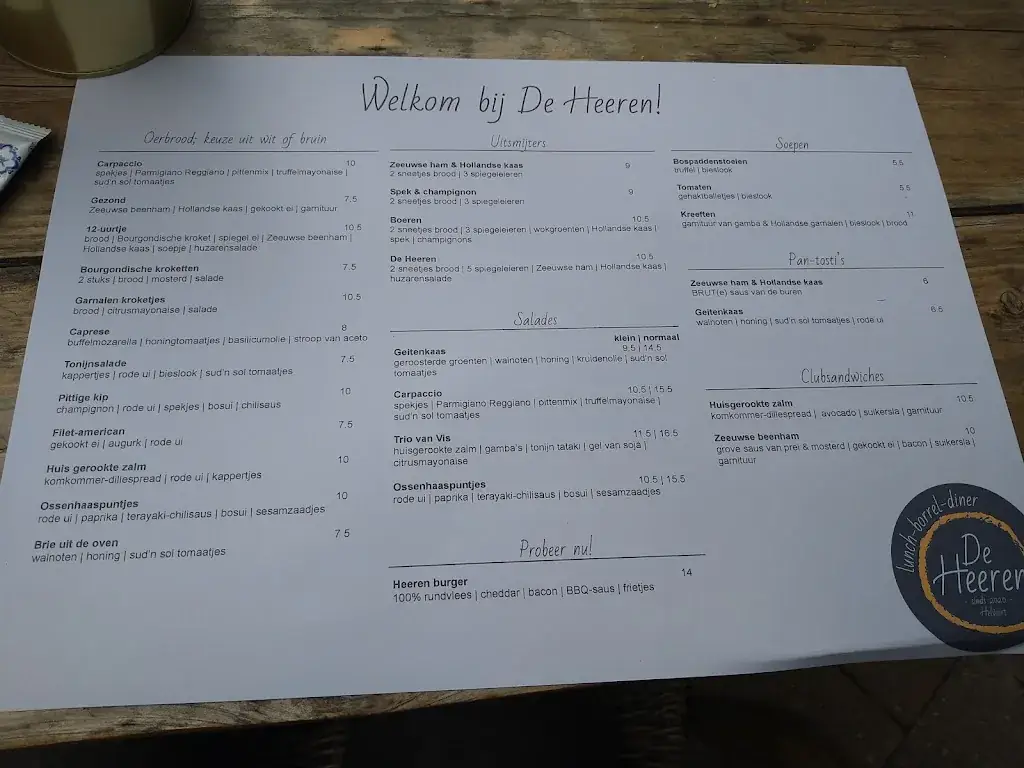 Welkom bij De Heeren!
Oerbrood; keuze uit wit of bruin
Carpaccio 10
spekjes | Parmigiano Reggiano | pittenmix | truffelmayonaise |
sud'n sol tomaatjes
Gezond 7.5
Zeeuwse beenham | Hollandse kaas | gekookt ei | garnituur
12-uurtje 10.5
brood | Bourgondische kroket | spiegel ei | Zeeuwse beenham |
Hollandse kaas | soepje | huzarensalade
Bourgondische kroketten 7.5
2 stuks | brood | mosterd | salade
Garnalen kroketjes 10.5
brood | citrusmayonaise | salade
Caprese 8
buffelmozarella | honingtomaatjes | basilicumolie | stroop van aceto
Tonijnsalade 7.5
kappertjes | rode ui | bieslook | sud'n sol tomaatjes
Pittige kip 10
champignon | rode ui | spekjes | bosui | chilisaus
Filet-american 7.5
gekookt ei | augurk | rode ui
Huis gerookte zalm 10
komkommer-dillespread | rode ui | kappertjes
Ossenhaaspuntjes 10
rode ui | paprika | terayaki-chilisaus | bosui | sesamzaadjes
Brie uit de oven 7.5
walnoten | honing | sud'n sol tomaatjes
Uitsmijters
Zeeuwse ham & Hollandse kaas 9
2 sneetjes brood | 3 spiegeleieren
Spek & champignon 9
2 sneetjes brood | 3 spiegeleieren
Boeren 10.5
2 sneetjes brood | 3 spiegeleieren | wokgroenten | Hollandse kaas |
spek | champignons
De Heeren 10.5
2 sneetjes brood | 5 spiegeleieren | Zeeuwse ham | Hollandse kaas |
huzarensalade
Salades
klein | normaal
Geitenkaas 9.5 | 14.5
geroosterde groenten | walnoten | honing | kruidenolie | sud'n sol
tomaatjes
Carpaccio 10.5 | 15.5
spekjes | Parmigiano Reggiano | pittenmix | truffelmayonaise |
sud'n sol tomaatjes
Trio van Vis 11.5 | 16.5
huisgerookte zalm | gamba's | tonijn tataki | gel van soja |
citrusmayonaise
Ossenhaaspuntjes 10.5 | 15.5
rode ui | paprika | terayaki-chilisaus | bosui | sesamzaadjes
Probeer nu!
Heeren burger 14
100% rundvlees | cheddar | bacon | BBQ-saus | frietjes
Soepen
Bospaddenstoelen 5.5
truffel | bieslook
Tomaten 5.5
gehaktballetjes | bieslook
Kreeften 11
garnituur van gamba & Hollandse garnalen | bieslook | brood
Pan-tosti's
Zeeuwse ham & Hollandse kaas 6
BRUT(e) saus van de buren
Geitenkaas 6.5
walnoten | honing | sud'n sol tomaatjes | rode ui
Clubsandwiches
Huisgerookte zalm 10.5
komkommer-dillespread | avocado | suikersla | garnituur
Zeeuwse beenham 10
grove saus van prei & mosterd | gekookt ei | bacon | suikersla |
garnituur
lunch-borrel-diner
De
Heeren